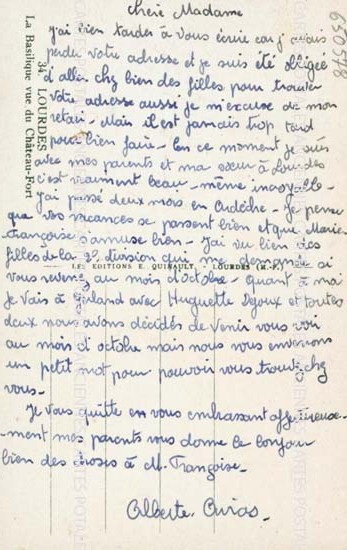 Chère Madame
J'ai bien tardée à vous écrire car j'avais
perdu votre adresse et je suis été obligée
d'aller chez bien des filles pour trouver
votre adresse aussi je m'excuse de mon
retard - Mais il est jamais trop tard
pour bien faire - En ce moment je suis
avec mes parents et ma sœur à Lourdes
c'est vraiment beau - même incroyable -
J'ai passé deux mois en Ardèche - Je pense
que vos vacances se passent bien et que Marie-
Françoise s'amuse bien - J'ai vu bien des
filles de la 2e division qui me demande si
vous revenez au mois d'octobre - quant a mai
Je vais à with Huguette et toutes
deux nous avons décidés de venir vous voir
au mois d'octobre mais nous vous enverrons
un petit mot pour pouvoir vous trouver chez
vous -
Je vous quitte en vous embrassant affectueuse-
-ment mes parents vous donne le bonjour
bien des choses à M. Françoise -
Alberte
34. LOURDES
La Basilique vue du Château-Fort
LES EDITIONS E. QUINAULT - LOURDES (H.-P.)
650578